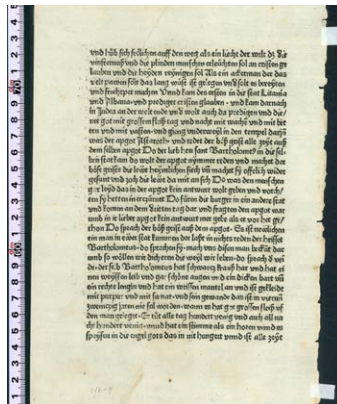 vnd hůb sich frölichen auff den weg als ein liecht der welt dz die
vinsternuß vnd die plinden menschen erleuchten sol an cristen ge
lauben vnd die heyden reynigen sol Als ein ackerman der das
velt pawen sol das lang wüst ist gelegen vnd sol es bereyten
vnd fruchtper machen Vnnd kam des ersten in die stat
vnd Albana vnd prediget cristen glauben vnd kam darnach
in Jndea an der welt ende vnd wolt auch da predigen vnd die
net got mit grossem fleiß tag vnd nacht mit wachen vnd mit bet
ten vnd mit vasten vnd gieng vnderweyl in den tempel darjn
was der apgot Astaroth vnd redet der böß geist alle zeyt auß
dem selben apgot Do der lieb herr sant Bartholome in die sel
ben stat kam do wolt der apgot nymmer reden vnd machet der
böß geiste die leüt heymlichen siech vnd machet sy offenlich wider
gesunt vnd zoh die leüt da mit an sich Do was den menschen
gar leyd das in der apgot kein antwurt wolt geben vnd vorch
ten sy hetten in erzürnet Do füren die burger in ein ander stat
vnd komen an dem dar vnd fragten den apgot war
umb in ir lieber apgot kein antwurt mer gebe als er vor het ge
thon Do sprach der böß geist auß dem apgot Es ist neulichen
ein man in eüer stat kummen der laßt in nichts reden der heisset
Bartholomeus do sprachen sy mach vns disen man bekant
vnd so wöllen wir dich eren die weyl wir leben do sprach d
der sel sb Bartholomeus hat schwartz krauß har vnd hat ei
nen weyssen leib vnd gar schöne augen vnd ein dicken bart vnd
ein rechte lengin vnd hat ein weissen mantel an vnd ist gekleidt
mit purpur vnd mit samat vnd sein gewande das ist in
zweintzig jaren nie sal worden wann es hat gar grossen fleiß
tag hundert venig vnd auch all na
cht hundert venig vnnd hat ein stimme als ein horen vnnd es
speysen in die engel gots das in nit hungert vnnd ist alle zeyt